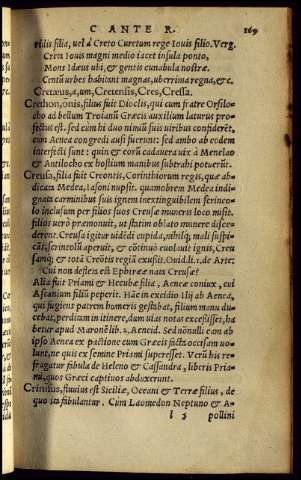 CANTER. 169
ridis filia, uel à Creto Curetum rege Iouis filio. Verg.
Creta Iouis magni medio iacet insula ponto,
Mons Idæus ubi, & gentis cunabula nostræ.
Centũ urbes habitant magnas, uberrima regna, &c.
Cretæus, a, um, Cretensis, Cres, Cressa.
Crethon, onis, filius fuit Dioclis, qui cum fratre Orsilo-
cho ad bellum Troianũ Græcis auxilium laturus pro-
fectus est. sed cum hi duo nimiũ suis uiribus confiderẽt,
cum Aenea congredi ausi fuerint: sed ambo ab eodem
interfecti sunt: quin & eorũ cadauera uix à Menelao
& Antilocho ex hostium manibus subtrahi potuerũt.
Creusa, filia fuit Creontis, Corinthiorum regis, quæ ab-
dicata Medea, Iasoni nupsit. quamobrem Medea indi-
gnata carminibus suis ignem inextinguibilem scrinio-
lo inclusum per filios suos Creusæ muneris loco misit.
filios uerò præmonuit, ut statim oblato munere disce-
derent. Creusa igitur uidẽdi cupida, nihilq; mali suspi-
cãs, scriniolũ aperuit, & cõtinuò euolauit ignis, Creu
samq; & totã Creõtis regiã exussit. Ouid. li. 1. de Arte:
Cui non defleta est Ephiræa nata Creusæ?
Alia fuit Priami & Hecubæ filia, Aeneæ coniux, cui
Ascanium filiũ peperit. Hæc in excidio Ilij ab Aenea,
qui fugiens patrem humeris gestabat, filium manu du-
cebat, perdium in itinere, dum uitat notas excessisset, ha
betur apud Maronẽ lib. 2. Aeneid. Sed nonulli eam ab
ipso Aenea ex pactione cum Græcis facta occisam uo-
lunt, ne quis ex semine Priami superesset. Verũ his re-
fragatur fabula de Heleno & Cassandra, liberis Pria-
mi, quos Græci captiuos abduxerunt.
Crinisus, fluuius est Siciliæ, Oceani & Terræ filius, de
quo ita fabulantur. Cum Laomedon Neptuno & A-
l 3 pollini